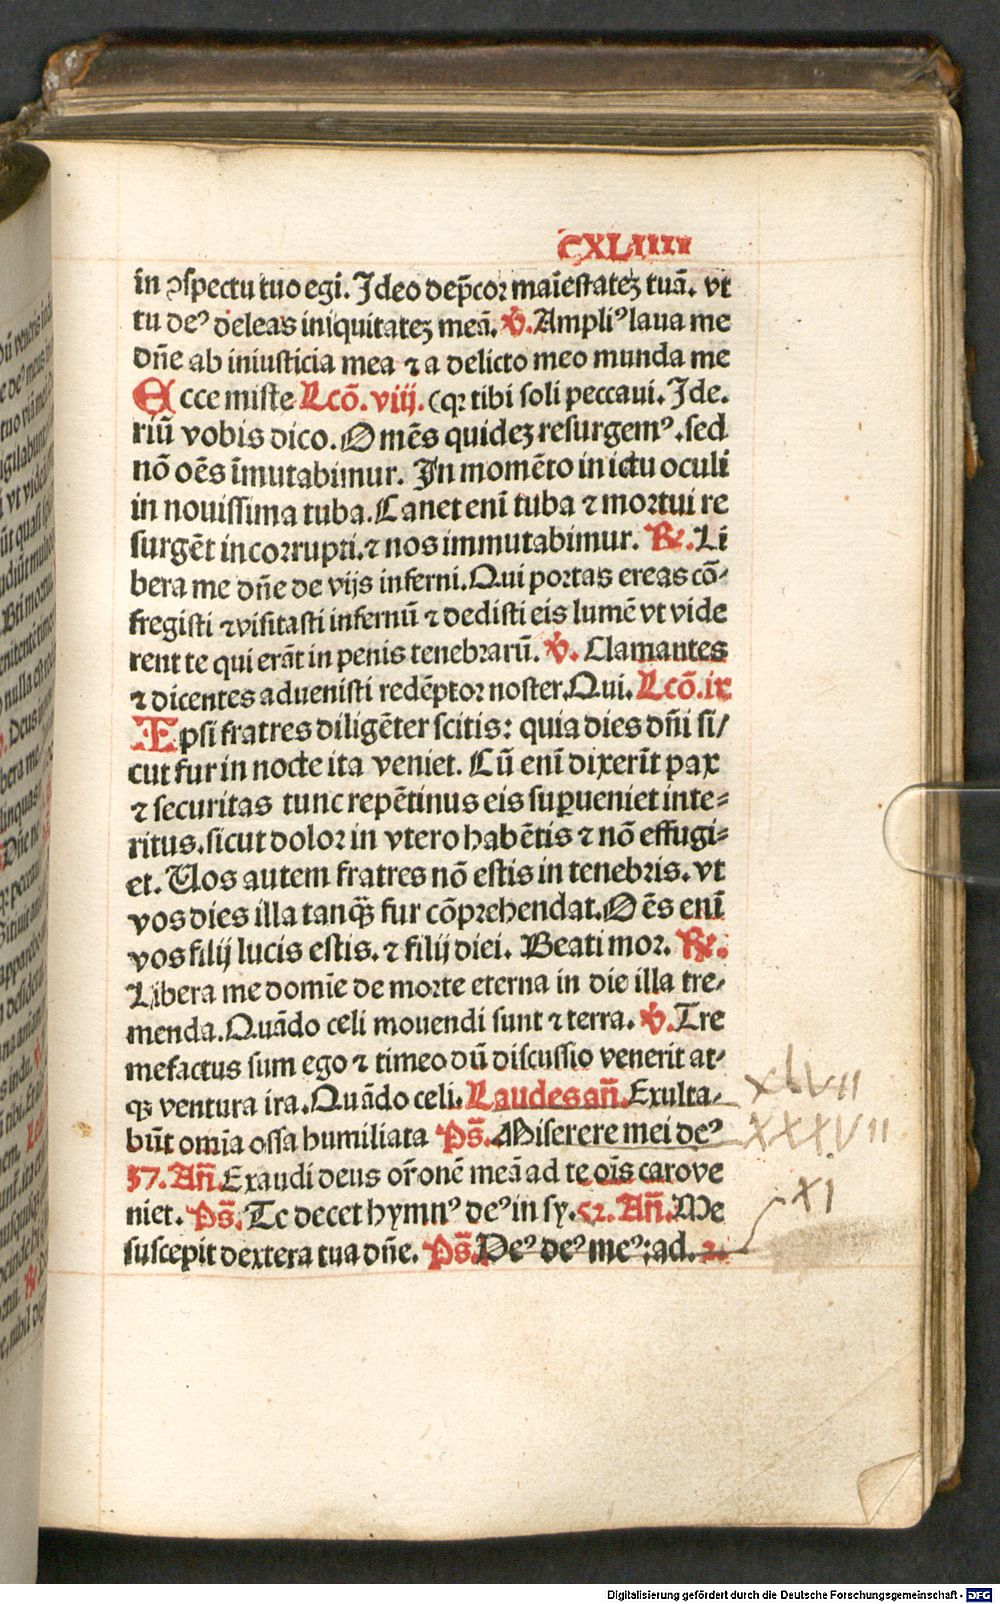 CXLIIII
in ↄspectu tuo egi. Ideo dep̃cor maiẽstatez tuã. vt
tu deꝰ deleas iniquitatez meã. ℣. Ampliꝰ laua me
dñe ab iniusticia mea ⁊ a delicto meo munda me
Ecce miste Lcõ. viij. (qꝛ tibi soli peccaui. Ide.
riũ vobis dico. Omẽs quidez resurgemꝰ. sed
nõ oẽs ĩmutabimur. In momẽto in ictu oculi
in nouissima tuba. Canet enĩ tuba ⁊ mortui re
surgẽt incorrupti. ⁊ nos immutabimur. ℟. Li
bera me dñe de vijs inferni. Qui portas ereas cõ-
fregisti ⁊ visitasti infernũ ⁊ dedisti eis lumẽ vt vide
rent te qui erãt in penis tenebrarũ. ℣. Clamantes
⁊ dicentes aduenisti redẽptor noster. Qui. Lcõ. ix
Ipsi fratres diligẽter scitis: quia dies dñi si/
cut fur in nocte ita veniet. Cũ enĩ dixerĩt pax
⁊ securitas tunc repẽtinus eis suꝑueniet inte-
ritus. sicut dolor in vtero habẽtis ⁊ nõ effugi-
et. Uos autem fratres nõ estis in tenebris. vt
vos dies illa tanq̃ȝ fur cõprehendat. Oẽs enĩ
vos filij lucis estis. ⁊ filij diei. Beati mor. ℟.
Libera me domĩe de morte eterna in die illa tre-
menda. Quãdo celi mouendi sunt ⁊ terra. ℣. Tre
mefactus sum ego ⁊ timeo dũ discussio venerit at-
qȝ ventura ira. Quãdo celi. Laudes añ. Exulta-
bũt omĩa ossa humiliata Ps̃. Miserere mei deꝰ
37. Añ. Exaudi deus or̃onẽ meã ad te oĩs caro ve
niet. Ps̃. Te decet hymnꝰ deꝰ in sy. 52. Añ. Me
suscepit dextera tua dñe. Ps̃. Deꝰ deꝰ meꝰ: ad.
xlvii
XXXVII
XI
Digitalisierung gefördert durch die Deutsche Forschungsgemeinschaft - DFG